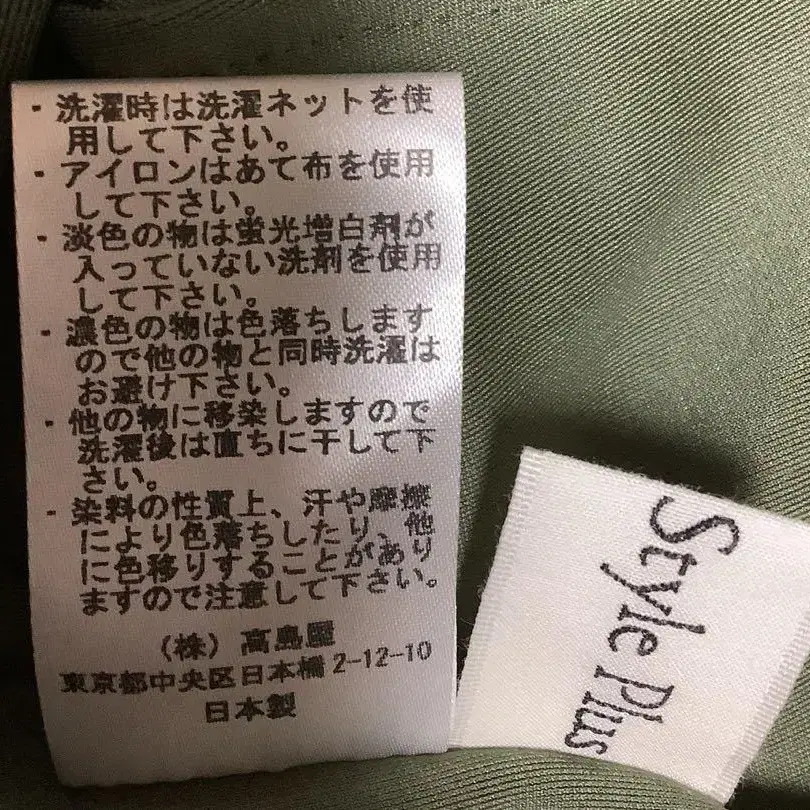 ・洗濯時は洗濯ネットを使
用して下さい。
・アイロンはあて布を使用
して下さい。
・淡色の物は蛍光増白剤が
入っていない洗剤を使用
して下さい。
・濃色の物は色落ちします
ので他の物と同時洗濯は
お避け下さい。
・他の物に移染しますので
洗濯後は直ちに干して下
さい。
・染料の性質上、汗や摩擦
により色落ちしたり、他
に色移りすることがあり
ますので注意して下さい。
(株)高島屋
東京都中央区日本橋2-12-10
日本製
Style Plus